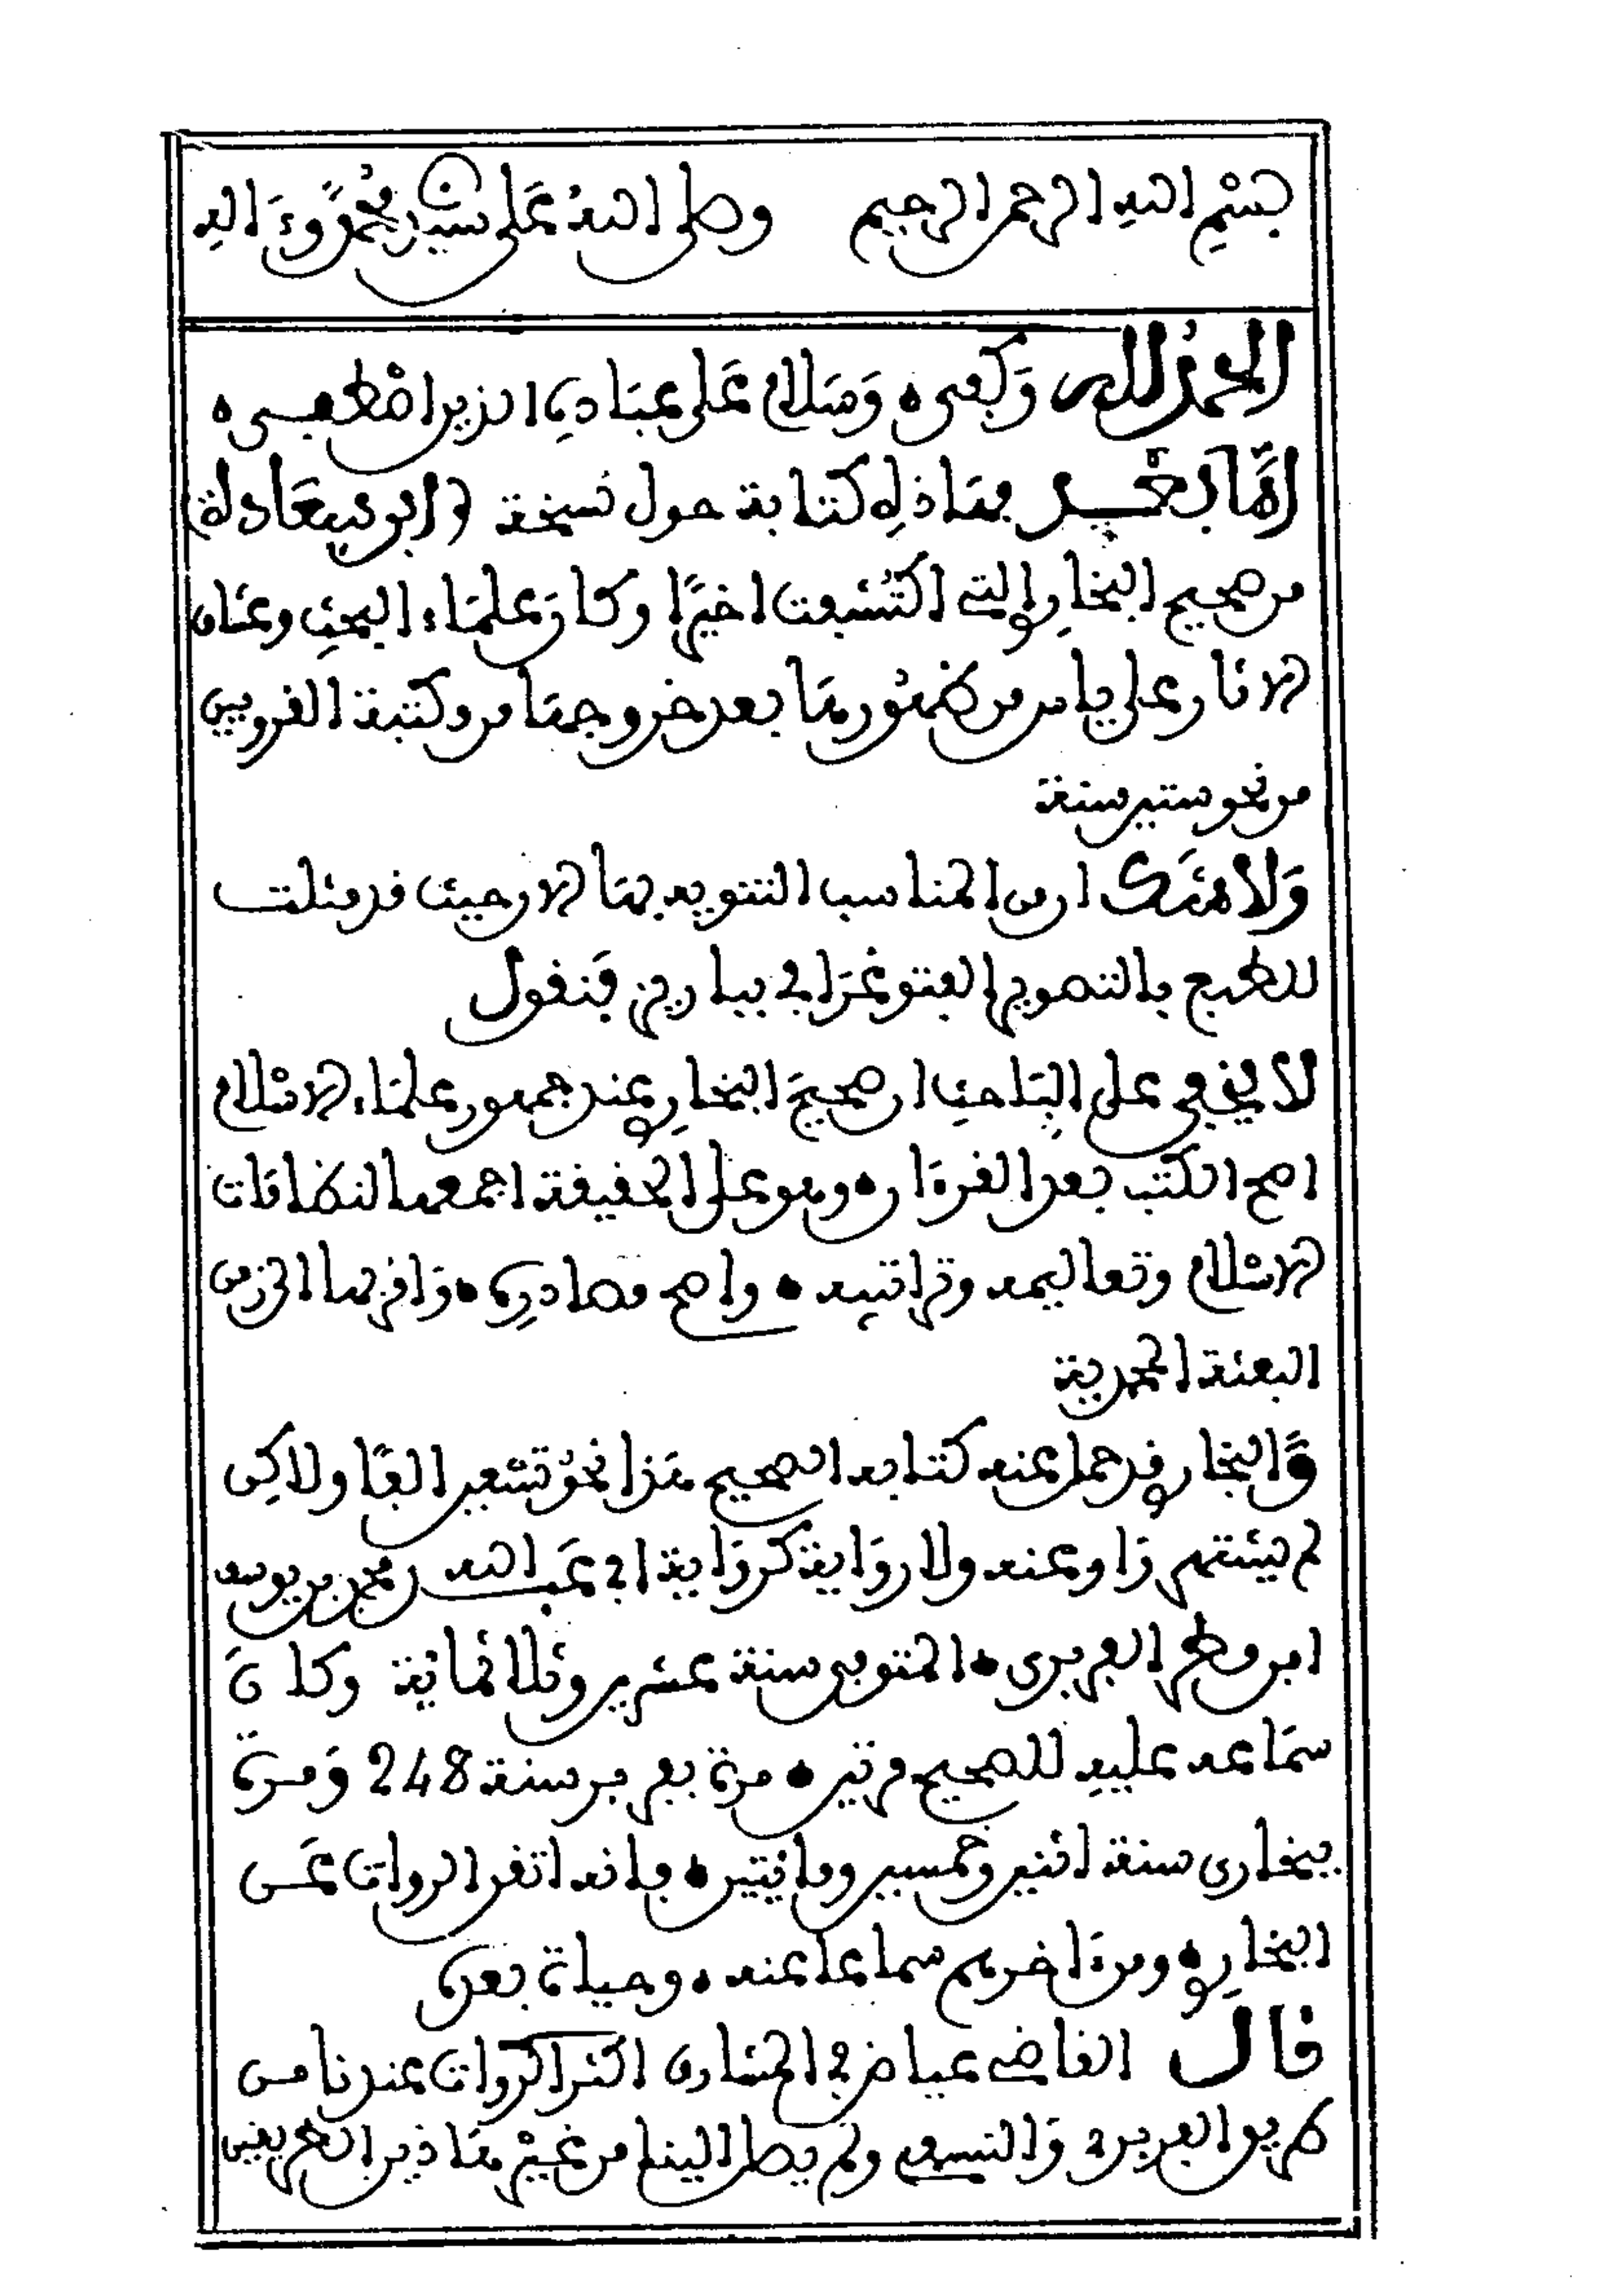 بسم الله الرحمن الرحيم وصلى الله على سيدنا محمد وءاله
الحمد لله وكفى، وسلام على عباده الذين اصطفى،
أما بعد فهاذه كتابة حول نسخة (ابن سعادة)
من صحيح البخاري التي اكتشفت اخيرا وكان علماء البحث وعشاق
الاثار على ياس من ظهورها بعد خروجها من مكتبة القرويين
من نحو ستين سنة
ولا شك ان من المناسب التنويه بها الان حيث قدمت
للطبع بالتصوير الفتوغرافي بباريز، فنقول
لا يخفى على الباحث ان صحيح البخاري عند جمهور علماء الاسلام
اصح الكتب بعد القرءان، وهو على الحقيقة اجمعها لنظامات
الاسلام وتعاليمه وتراتيبه، واصح مصادره، واقربها الى زمن
البعثة المحمدية
والبخاري قد حمل عنه كتابه الصحيح هذا نحو تسعين الفا ولاكن
لم يشتهر راو عنه ولا رواية كرواية ابي عبد الله محمد بن يوسف
ابن مطر الفربري، المتوفى سنة عشرين وثلاثمائة وكان
سماعه عليه للصحيح مرتين، مرة بفربر سنة 248 ومرة
ببخارى سنة اثنين وخمسين ومائتين، فانه اتقن الروات عن
البخاري، ومن ءاخرهم سماعا عنه، وحياة بعده
قال القاضي عياض في المشارق اكثر الروات عندنا من
طريق الفربري والنسفي ولم يصل الينا من غير هاذين الطريقين